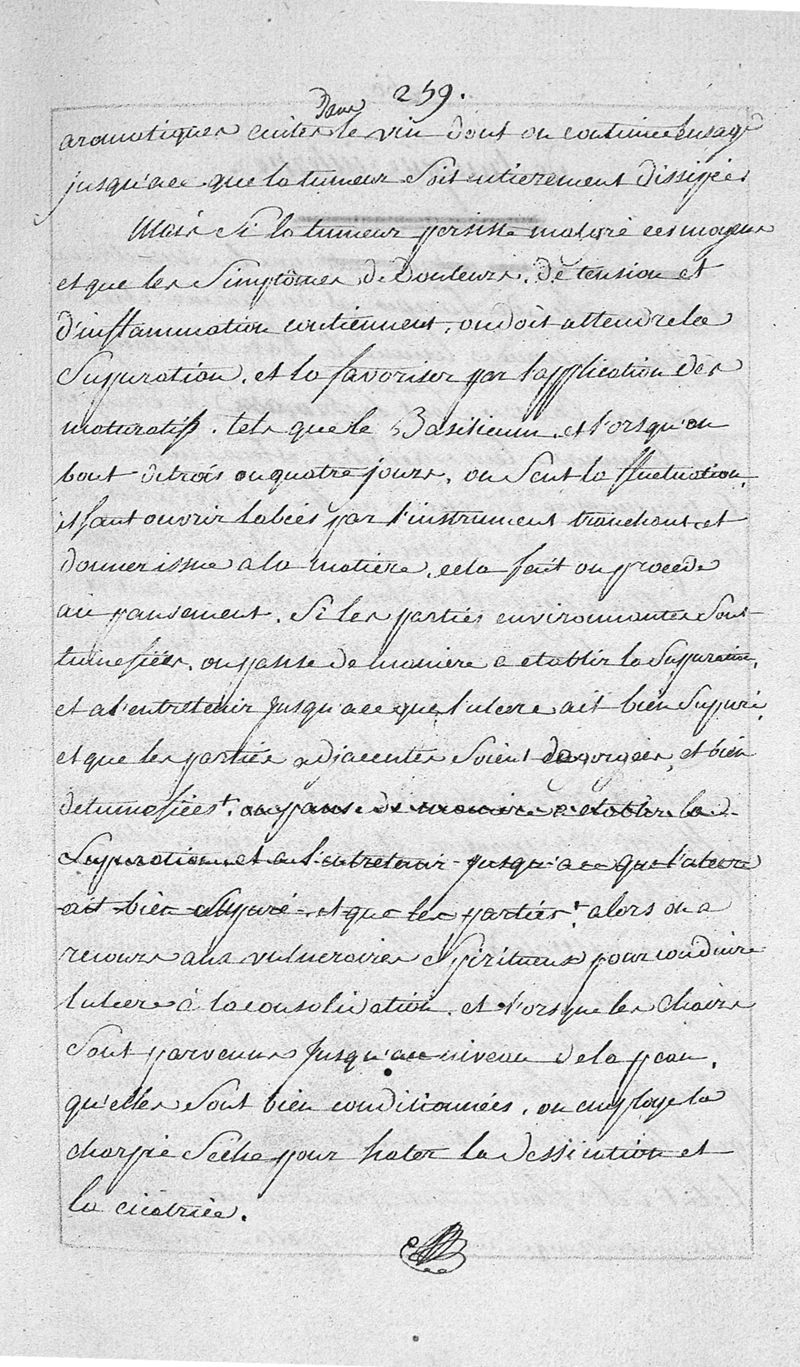 259.
Dans
aromatiques cuites le vin dont on continue lusage
jusqu'a ce que la tumeur Soit entierement dissipée.
Mais Si la tumeur persiste malgré ces moyens
et que les Simptômes de Douleurs, de tension et
d'inflammation continnent, on doit attendre la
Supuration, et la favoriser par l'application des
maturatifs, tels que le Basilicum, et l'orsqu'au
bout de trois ou quatre jours, on Sent la fluctuation,
il faut ouvrir labcès par l'instrument tranchant et
donner issue a la matière, cela fait on procede
au pansement. Si les parties environnantes Sont
tumefiées, on panse de maniere a etablir la Supuration,
et a l'entretenir jusqu'a ce que l'ulcere ait bien Supuré,
et que les parties adjacentes Soient degorgées, et bien
detumefiées, on panse de maniere a etablir la
Supuration et a l'entretenir jusqu'a ce que l'ulcere
ait bien Supuré et que les parties, alors on a
recours aux vulneraires Spiritueux pour conduire
lulcere à la consolidation, et l'orsque les chairs
Sont parvenues jusqu'au niveau de la peau,
qu'elles Sont bien conditionnées, on employe la
charpie Sèche pour hater la dessication et
la cicatrice.